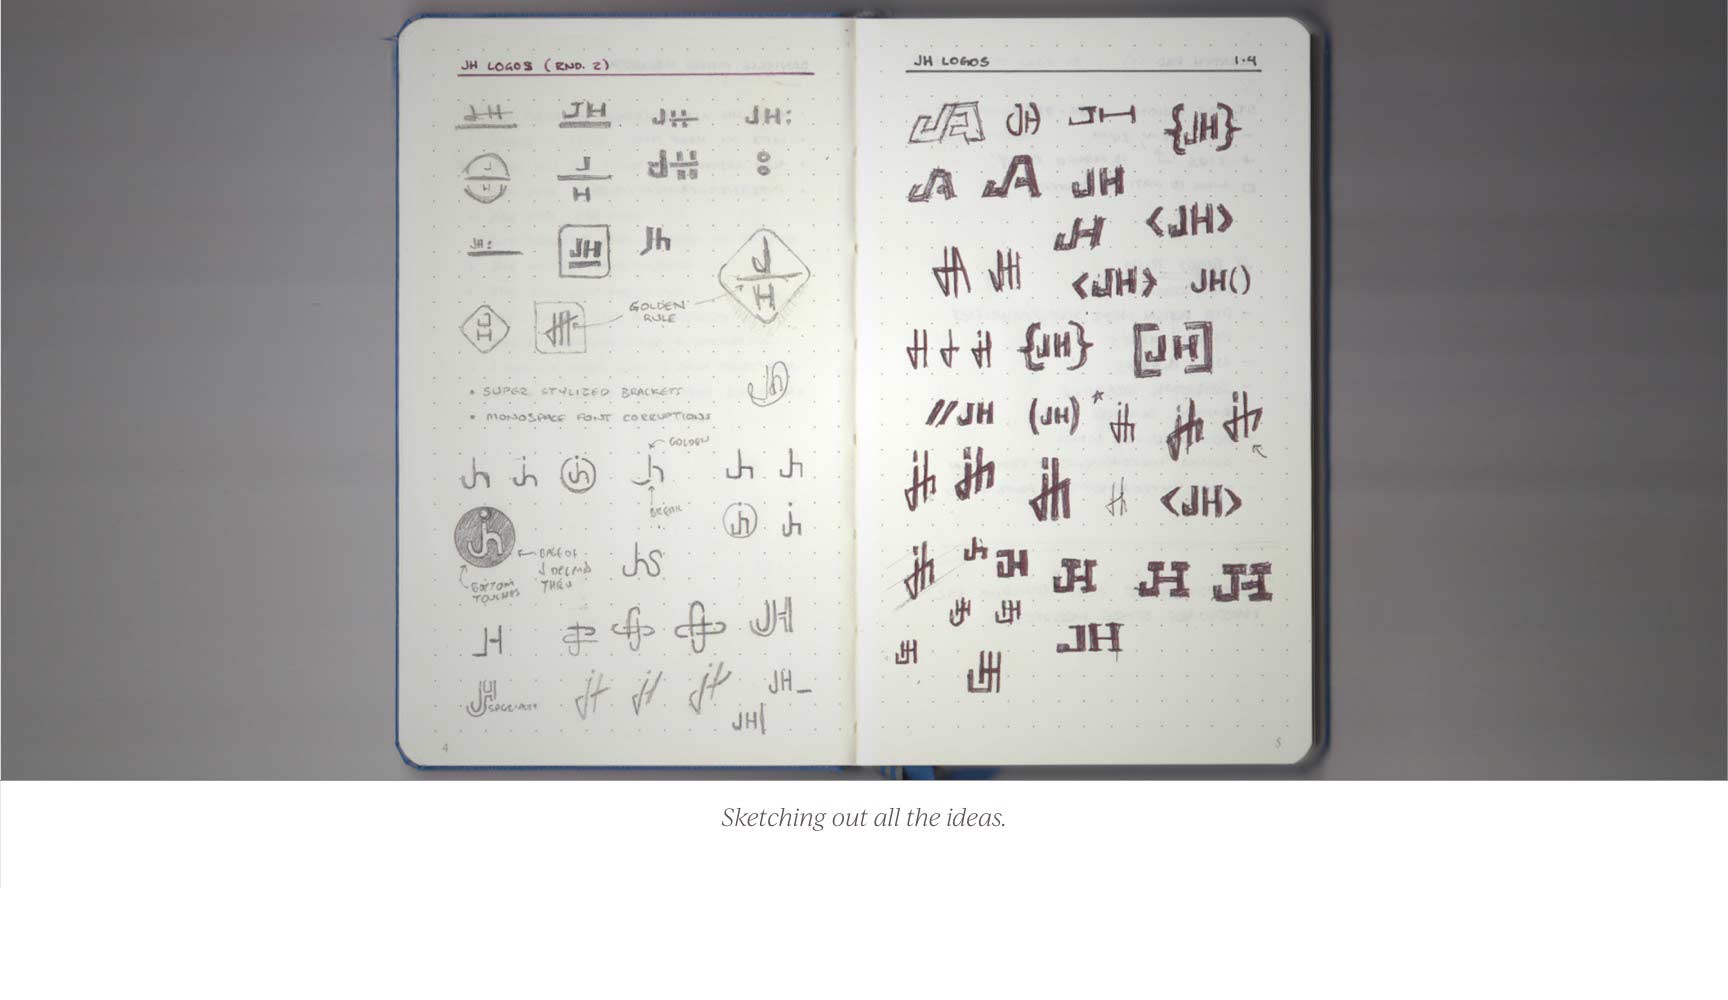 JH LOGOS (RND. 2)
JH
JH:
J
H
JH:
JH
Jh
J
H
GOLDEN
RULE
JH
• SUPER STYLIZED BRACKETS
• MONOSPACE FONT CORRUPTIONS
Jh
GOLDEN
jh jh jh jh jh jh
BREAK
jh jh jh
BASE OF
J
THRU
BOTTOM
TOUCHES
JhS
JH
JH
JH_
JH|
4
JH LOGOS 1·4
JH JH {JH}
JH
JH <JH>
<JH> JH()
{JH} [JH]
//JH (JH) * jh jh jh
jh jh jh jh <JH>
jh jh JH JH JH JH
JH JH
JH
JH
JH
5
Sketching out all the ideas.